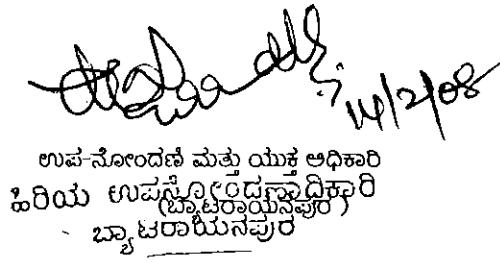 14/2/08
ಉಪ-ನೋಂದಣಿ ಮತ್ತು ಯುಕ್ತ ಅಧಿಕಾರಿ
ಹಿರಿಯ ಉಪನೋಂದಣಾಧಿಕಾರಿ
(ಬ್ಯಾಟರಾಯನಪುರ)
ಬ್ಯಾಟರಾಯನಪುರ